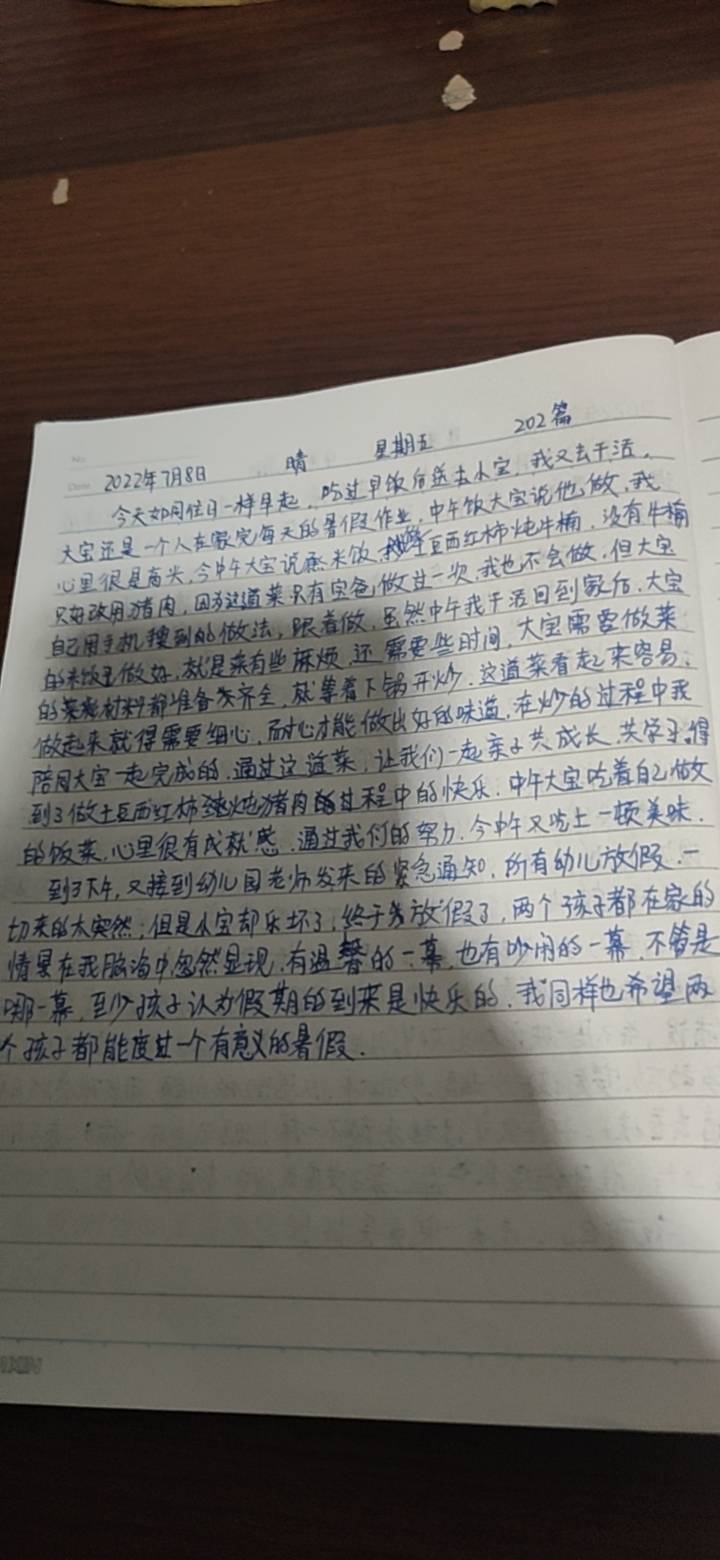 No
Date 2022年7月8日 晴 星期五 202篇
今天如同往日一样早起，吃过早饭后送去小宝，我又去干活，
大宝还是一个人在家完每天的暑假作业，中午饭大宝说他做，我
心里很是高兴，今中午大宝说蒸米饭，土豆西红柿炖牛楠，没有牛楠
只好改用猪肉，因为这道菜只有宝爸做过一次，我也不会做，但大宝
自己用手机搜到的做法，跟着做，虽然中午我干活回到家后，大宝
的米饭已做好，就是菜有些麻烦，还需要些时间，大宝需要做菜
的菜材料都准备齐全，就等着下锅开炒，这道菜看起来容易，
做起来就得需要细心，耐心才能做出好的味道，在炒的过程中我
陪同大宝一起完成的，通过这道菜，让我们一起亲子共成长，共学习，得
到了做土豆西红柿炖猪肉的过程中的快乐，中午大宝吃着自己做
的饭菜，心里很有成就感，通过我们的努力，今中午又吃上一顿美味，
到了下午，又接到幼儿园老师发来的紧急通知，所有幼儿放假，一
切来的太突然，但是小宝却乐坏了，终于放假了，两个孩子都在家的
情景在我脑海中忽然显现，有温馨的一幕，也有吵闹的一幕，不管是
哪一幕，至少孩子认为假期的到来是快乐的，我同样也希望两
个孩子都能度过一个有意义的暑假．